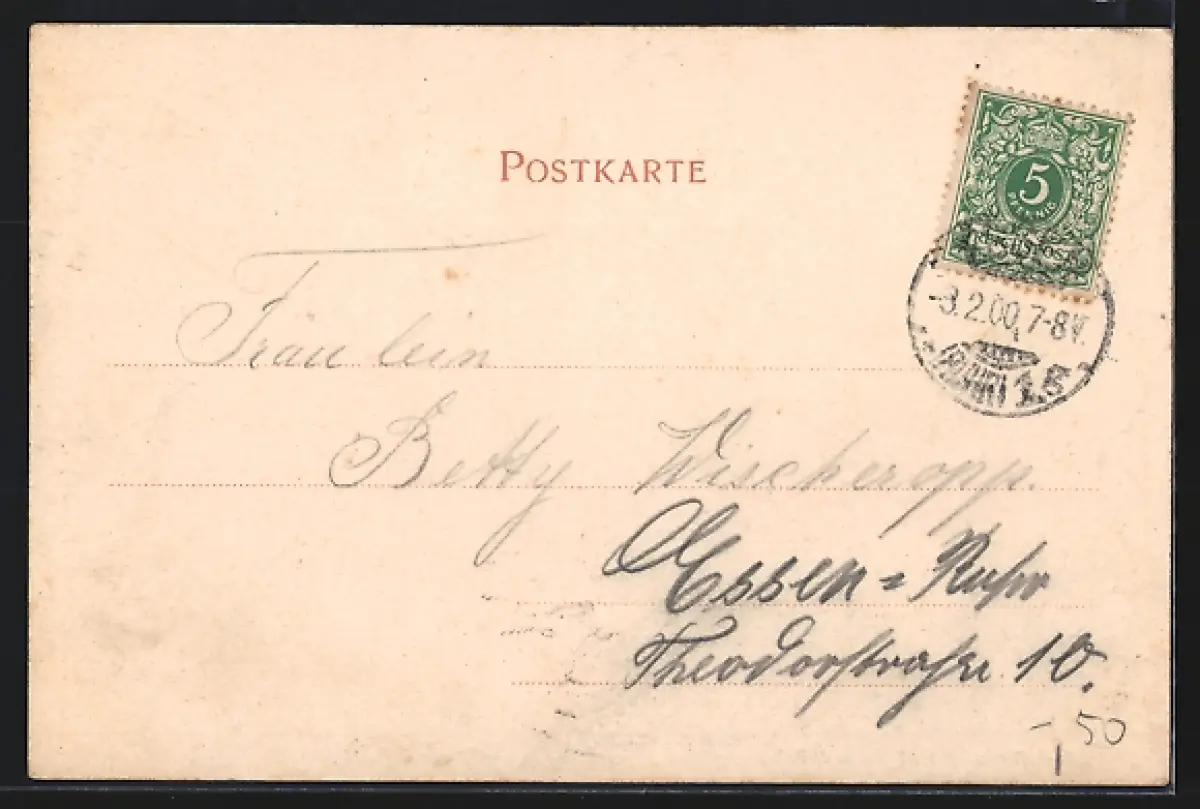 POSTKARTE
5
PFENNIG
REICHSPOST
-3.2.00, 7-8V.
Fräulein
Betty Wischeropp.
Essen = Ruhr
Theodorstraße 10.
50